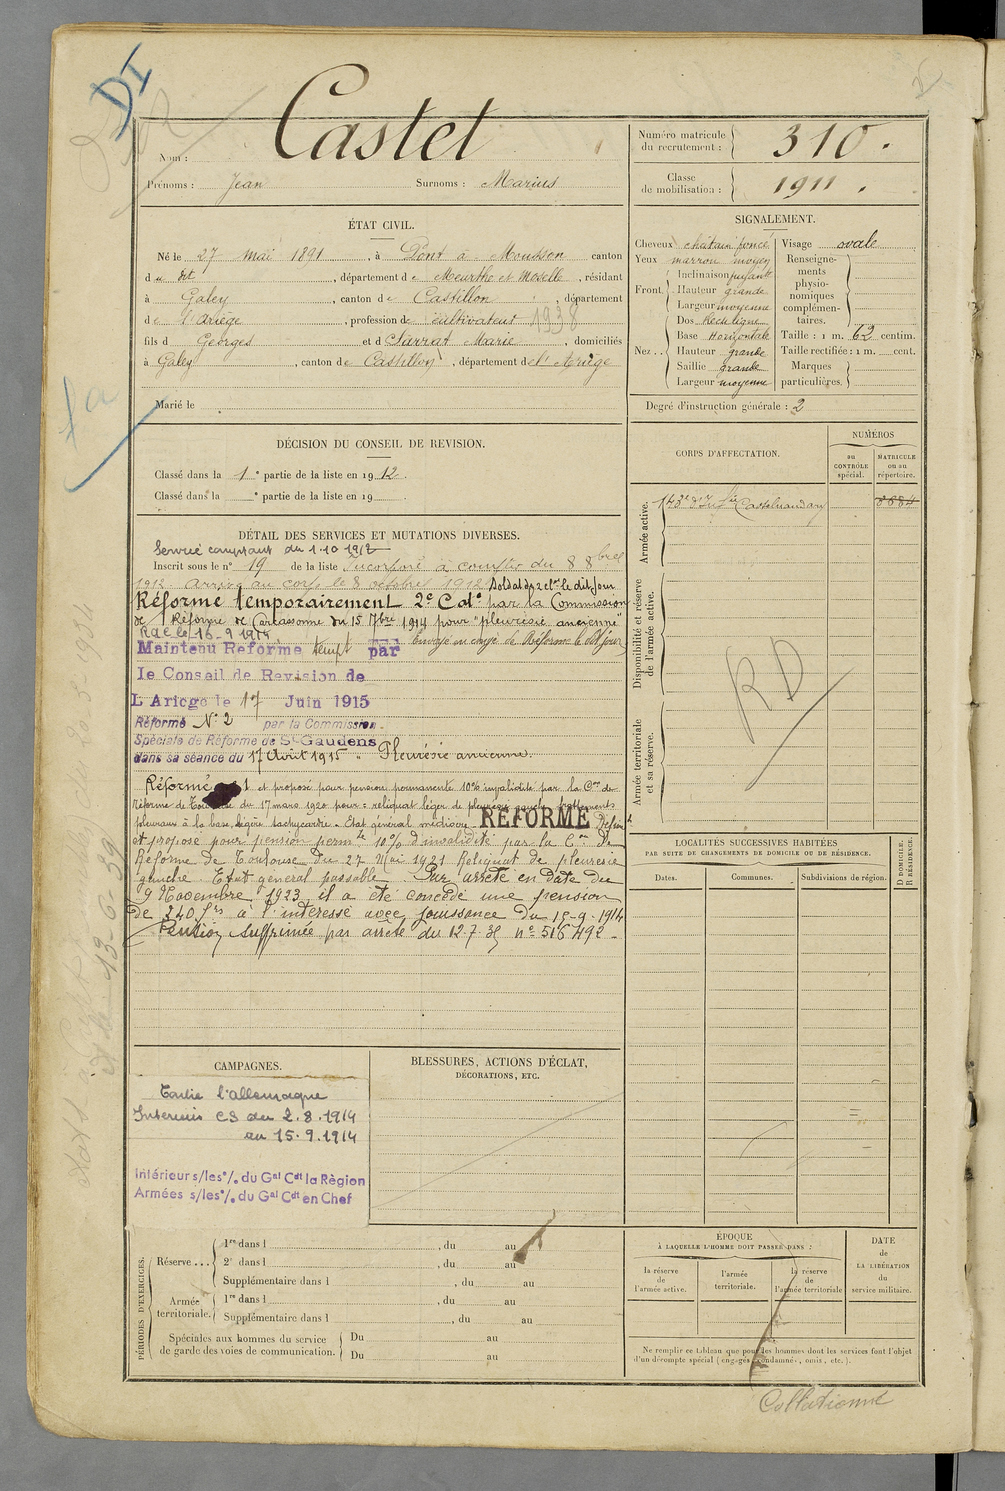 DI
Nom : Castet
Prénoms : Jean Surnoms : Marius
Numéro matricule du recrutement : 310.
Classe de mobilisation : 1911.
ÉTAT CIVIL.
Né le 27 mai 1891, à Pont à Mousson canton
du dit, département de Meurthe et Moselle, résidant
à Galey, canton de Castillon, département
de l'Ariège, profession de cultivateur 1938
fils de Georges et de Sarrat Marie, domiciliés
à Galey, canton de Castillon, département de l'Ariège
Marié le
SIGNALEMENT.
Cheveux châtain foncé
Yeux marron moyen
Front. Inclinaison fuyant
Hauteur grande
Largeur moyenne
Nez.. Dos Rectiligne
Base Horizontale
Hauteur grande
Saillie grande
Largeur moyenne
Visage ovale
Renseignements physionomiques complémentaires.
Taille : 1 m. 62 centim.
Taille rectifiée : 1 m. cent.
Marques particulières.
Degré d'instruction générale : 2
DÉCISION DU CONSEIL DE REVISION.
Classé dans la 1e partie de la liste en 1912.
Classé dans la e partie de la liste en 19
CORPS D'AFFECTATION.
NUMÉROS
au CONTRÔLE spécial.
MATRICULE ou au répertoire.
Armée active.
143e d'Inf.rie Castelnaudary
8684
Disponibilité et réserve de l'armée active.
RD
Armée territoriale et sa réserve.
DÉTAIL DES SERVICES ET MUTATIONS DIVERSES.
Service comptant du 1-10 1912
Inscrit sous le n° 19 de la liste Incorporé à compter du 8 8bre
1912. Arrivé au corps le 8 octobre 1912 Soldat de 2e cl. le dit jour
Réformé temporairement 2e Cat. par la Commission
de Réforme de Carcassonne du 15 7bre 1914 pour "pleurésie ancienne"
Rac le 16-9 1914. Envoyé en congé de Réforme le dit jour
Maintenu Réformé tempt par
le Conseil de Revision de
L'Ariège le 17 Juin 1915
Réformé N° 2 par la Commission
Spéciale de Réforme de St Gaudens
dans sa séance du 17 Août 1915 "Pleurésie ancienne.
Réformé n° 1 et proposé pour pension permanente 10% invalidité par la Con de
réforme de Toulouse du 17 mars 1920 pour : reliquat léger de pleurésie gauche frottements
pleuraux à la base, légère tachycardie. Etat général médiocre. RÉFORMÉ Défini
et proposé pour pension permte 10% d'invalidité par la Con de
Réforme de Toulouse du 27 Mai 1921 Reliquat de pleurésie
gauche. Etat général passable. Par arrêté en date du
9 Novembre 1923 il a été concédé une pension
de 240 frs à l'intéressé avec jouissance du 15-9-1914
Pension supprimée par arrêté du 12.7.35 n° 516492
LOCALITÉS SUCCESSIVES HABITÉES
PAR SUITE DE CHANGEMENTS DE DOMICILE OU DE RÉSIDENCE.
Dates.
Communes.
Subdivisions de région.
D DOMICILE.
R RÉSIDENCE.
CAMPAGNES.
Contre l'allemagne
Intérieur CS du 2.8.1914
au 15.9.1914
Intérieur s/les °/. du Gal Cdt la Région
Armées s/les °/. du Gal Cdt en Chef
BLESSURES, ACTIONS D'ÉCLAT,
DÉCORATIONS, ETC.
PÉRIODES D'EXERCICES.
Réserve ...
1re dans l , du au
2e dans l , du au
Supplémentaire dans l , du au
Armée territoriale.
1re dans l , du au
Supplémentaire dans l , du au
Spéciales aux hommes du service de garde des voies de communication.
Du au
Du au
ÉPOQUE
À LAQUELLE L'HOMME DOIT PASSER DANS :
la réserve de l'armée active.
l'armée territoriale.
la réserve de l'armée territoriale
DATE de LA LIBÉRATION du service militaire.
Ne remplir ce tableau que pour les hommes dont les services font l'objet
d'un décompte spécial (engagés, condamnés, omis, etc.).
Collationné